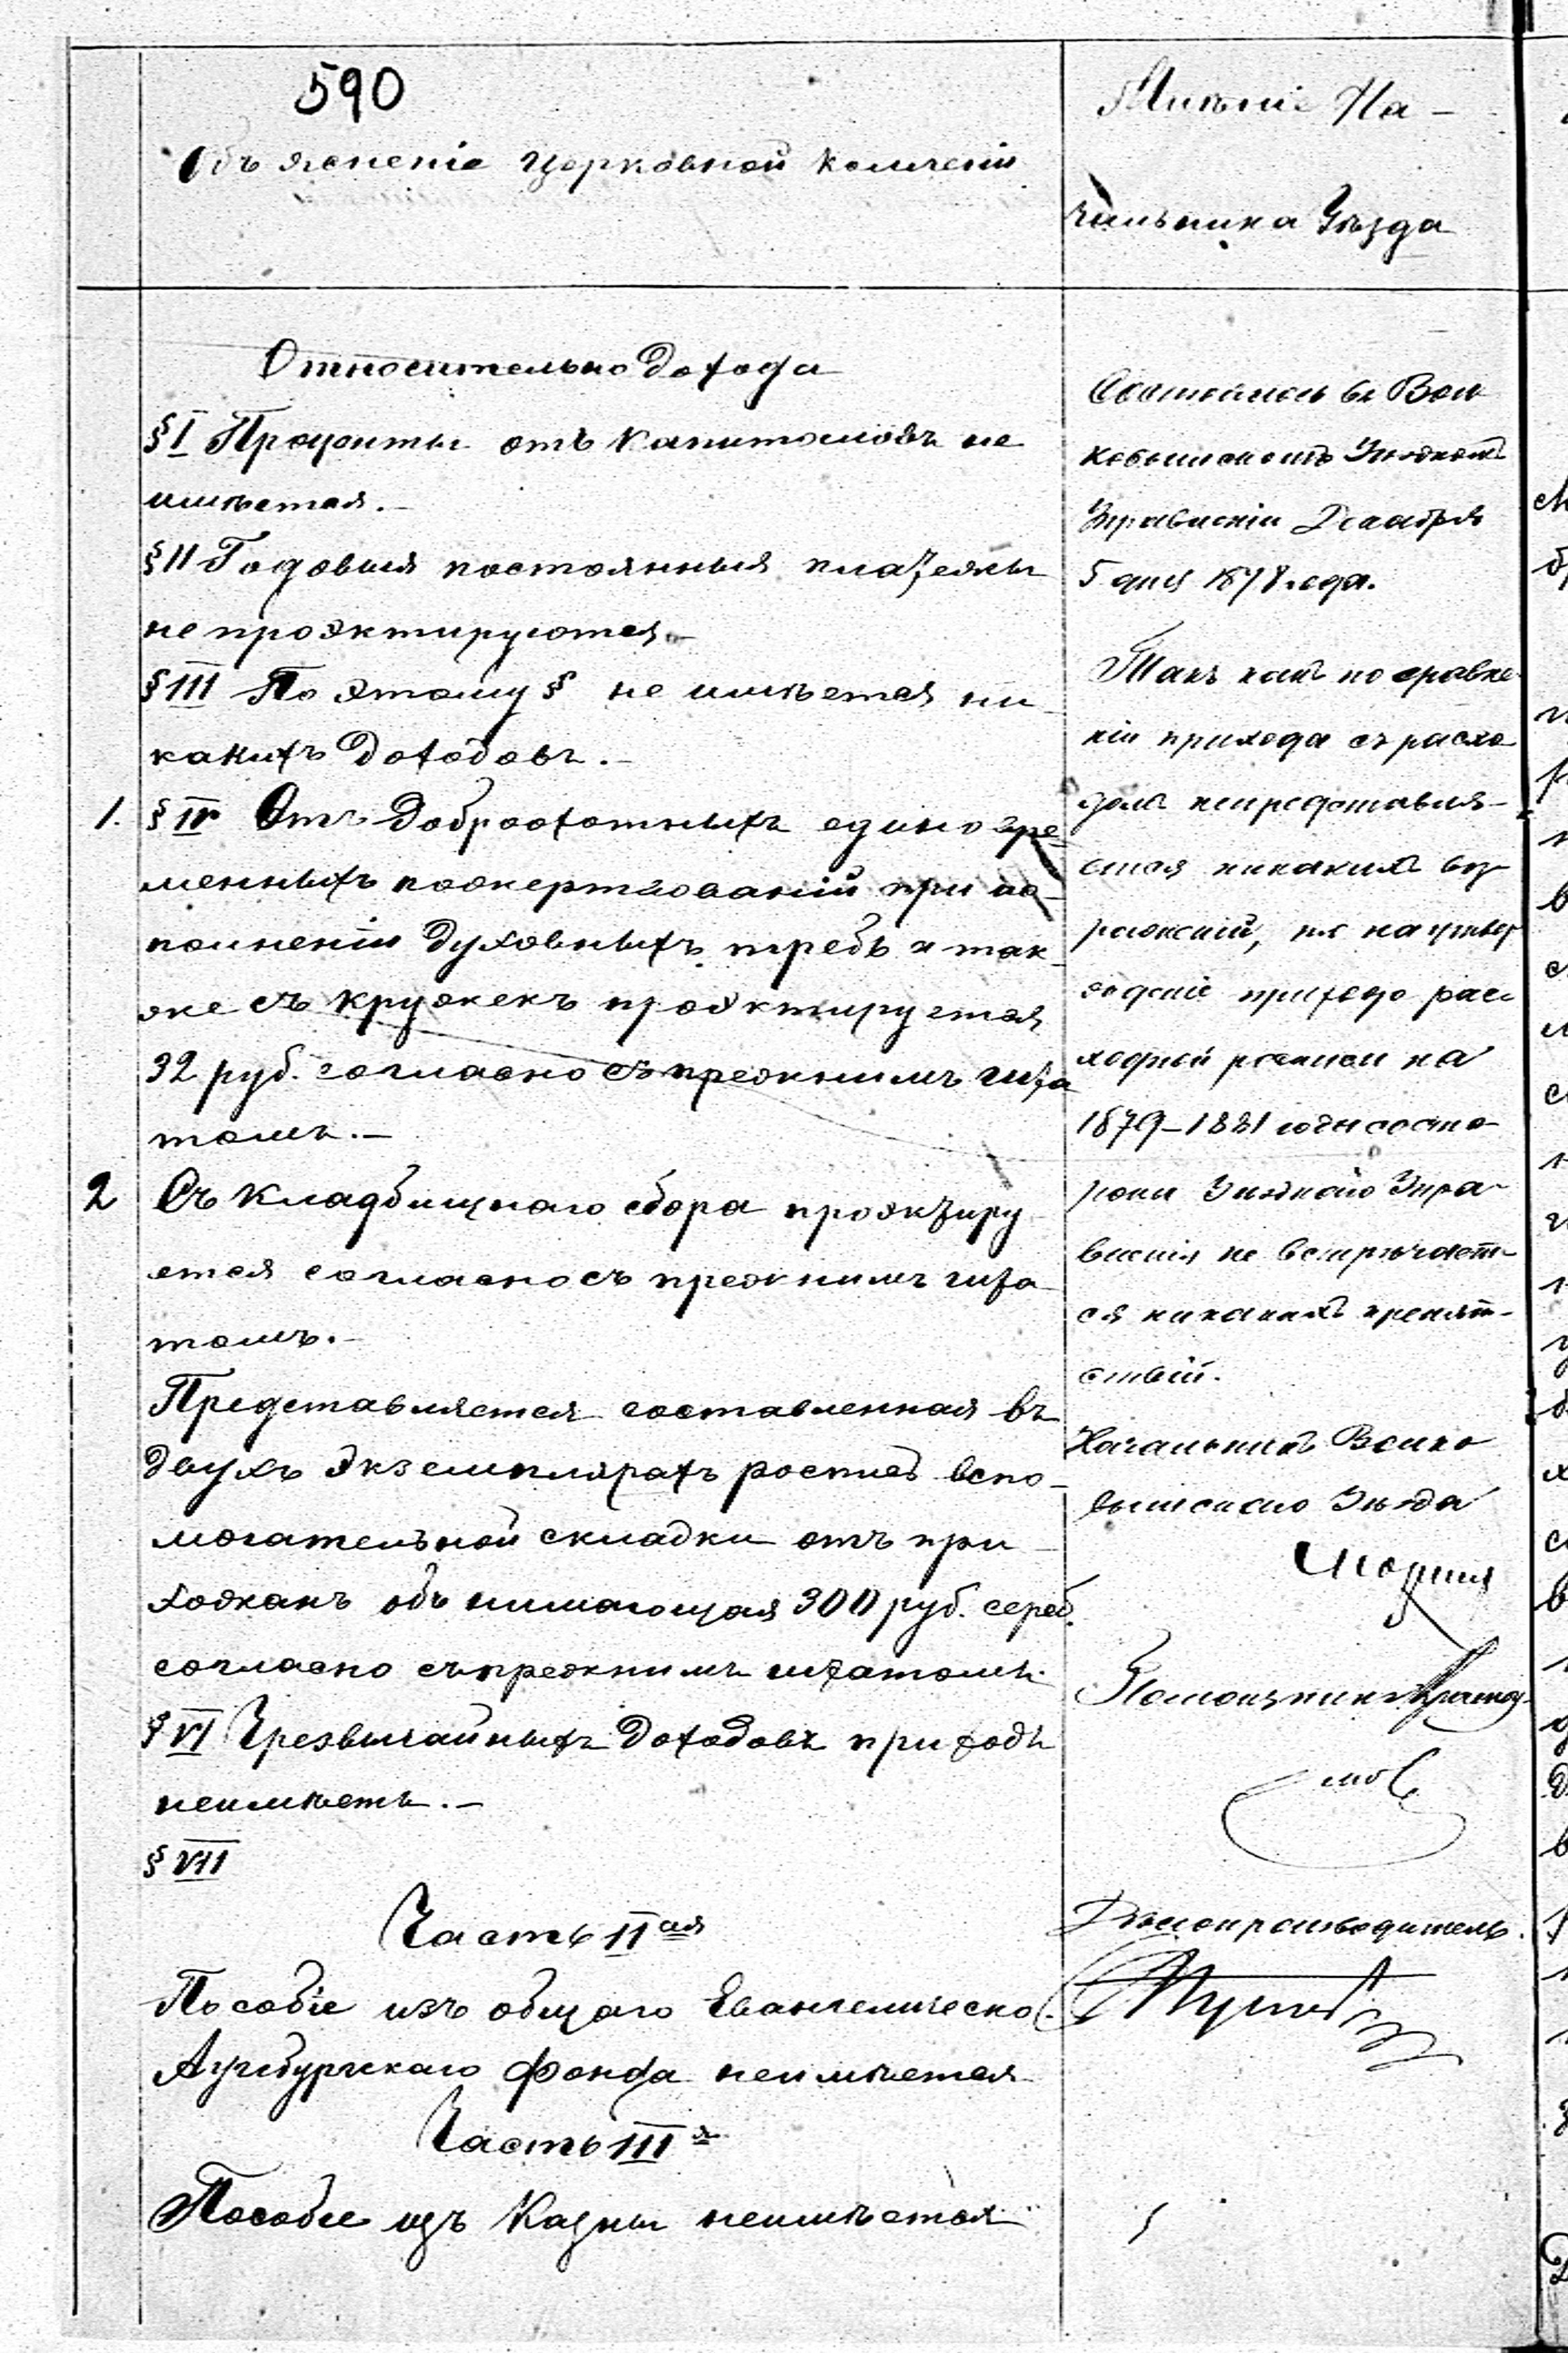 590
Объясненіе церковной коллегіи
Относительно дохода
§ I Проценты отъ капиталовъ не
имѣется.–
§ II Годовыя постоянныя платежы
не проэктируются.–
§ III По этому § не имѣется ни-
какихъ доходовъ.–
1. § IV Отъ доброохотныхъ единовре-
менныхъ пожертвованій при ис-
полненіи духовныхъ требъ и так-
же съ кружекъ проэктируется
32 руб. согласно съ прежнимъ шта
томъ.–
2 Съ кладбищнаго сбора проэктиру
ется согласно съ прежнимъ шта-
томъ.–
Представляется составленная въ
двухъ экземплярахъ роспись вспо-
могательной складки отъ при-
хожанъ обънимающая 300 руб. сереб.
согласно съ прежнимъ штатомъ.
§ VI Чрезвычайныхъ доходовъ приходъ
неимѣетъ.–
§ VII
Часть II ая
Пособіе изъ общаго Евангелическо-
Аугсбургскаго фонда неимѣется
Часть III я
Пособіе изъ Казны неимѣется
Мнѣніе На-
чальника Уѣзда
Состоялось въ Вол
ковышскомъ Уѣздномъ
Управленіи Декабря
5 дня 1878 года.
Такъ какъ по сравне-
ніи прихода съ расхо-
домъ непредставля-
ется никакихъ воз-
раженій, то на утвер
жденіе приходо рас-
ходной росписи на
1879–1881 годы со сто-
роны Уѣзднаго Упра-
вленія не встрѣчает-
ся никакихъ препят-
ствій.
Начальникъ Волко
вышскаго Уѣзда
Помощникъ
Дѣлопроизводитель.